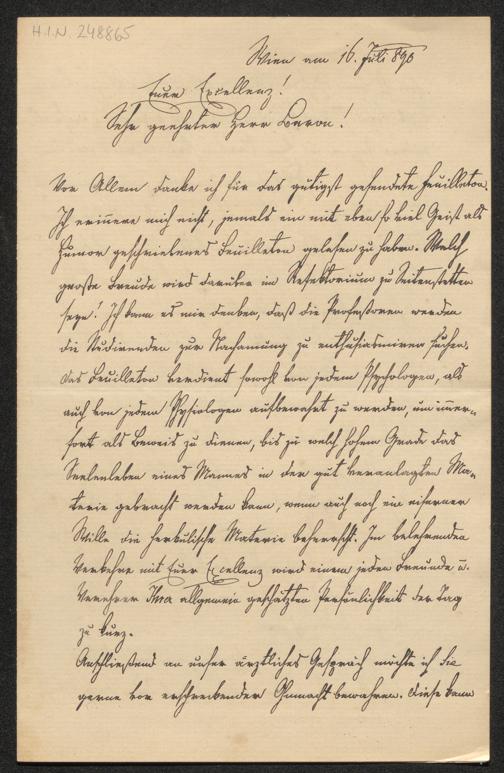 H.I.N. 248865
Wien am 16. Juli 890
Euer Excellenz!
Sehr geehrter Herr Baron!
Vor Allem danke ich für das gütigst gesendete Feuilleton.
Ich erinnere mich nicht, jemals ein mit eben so viel Geist als
Humor geschriebenes Feuilleton gelesen zu haben. Welch
große Freude wird darüber im Refektorium zu Seitenstetten
seyn! Ich kann es mir denken, daß die Professoren werden
die Studirenden zur Nachamung zu enthusiasmiren suchen.
Das Feuilleton verdient sowohl von jedem Psychologen, als
auch von jedem Physiologen aufbewahrt zu werden, um immer-
fort als Beweis zu dienen, bis zu welch hohem Grade das
Seelenleben eines Mannes in der gut veranlagten Ma-
terie gebracht werden kann, wenn auch noch ein eiserner
Wille die herkulische Materie beherrscht. Im belehrenden
Verkehre mit Euer Excellenz wird einem jeden Freunde u.
Verehrer Ihrer allgemein geschätzten Persönlichkeit der Tag
zu kurz.
Anschließend an unser ärztliches Gespräch möchte ich Sie
gerne vor erschreckender Ohnmacht bewahren. Diese kann